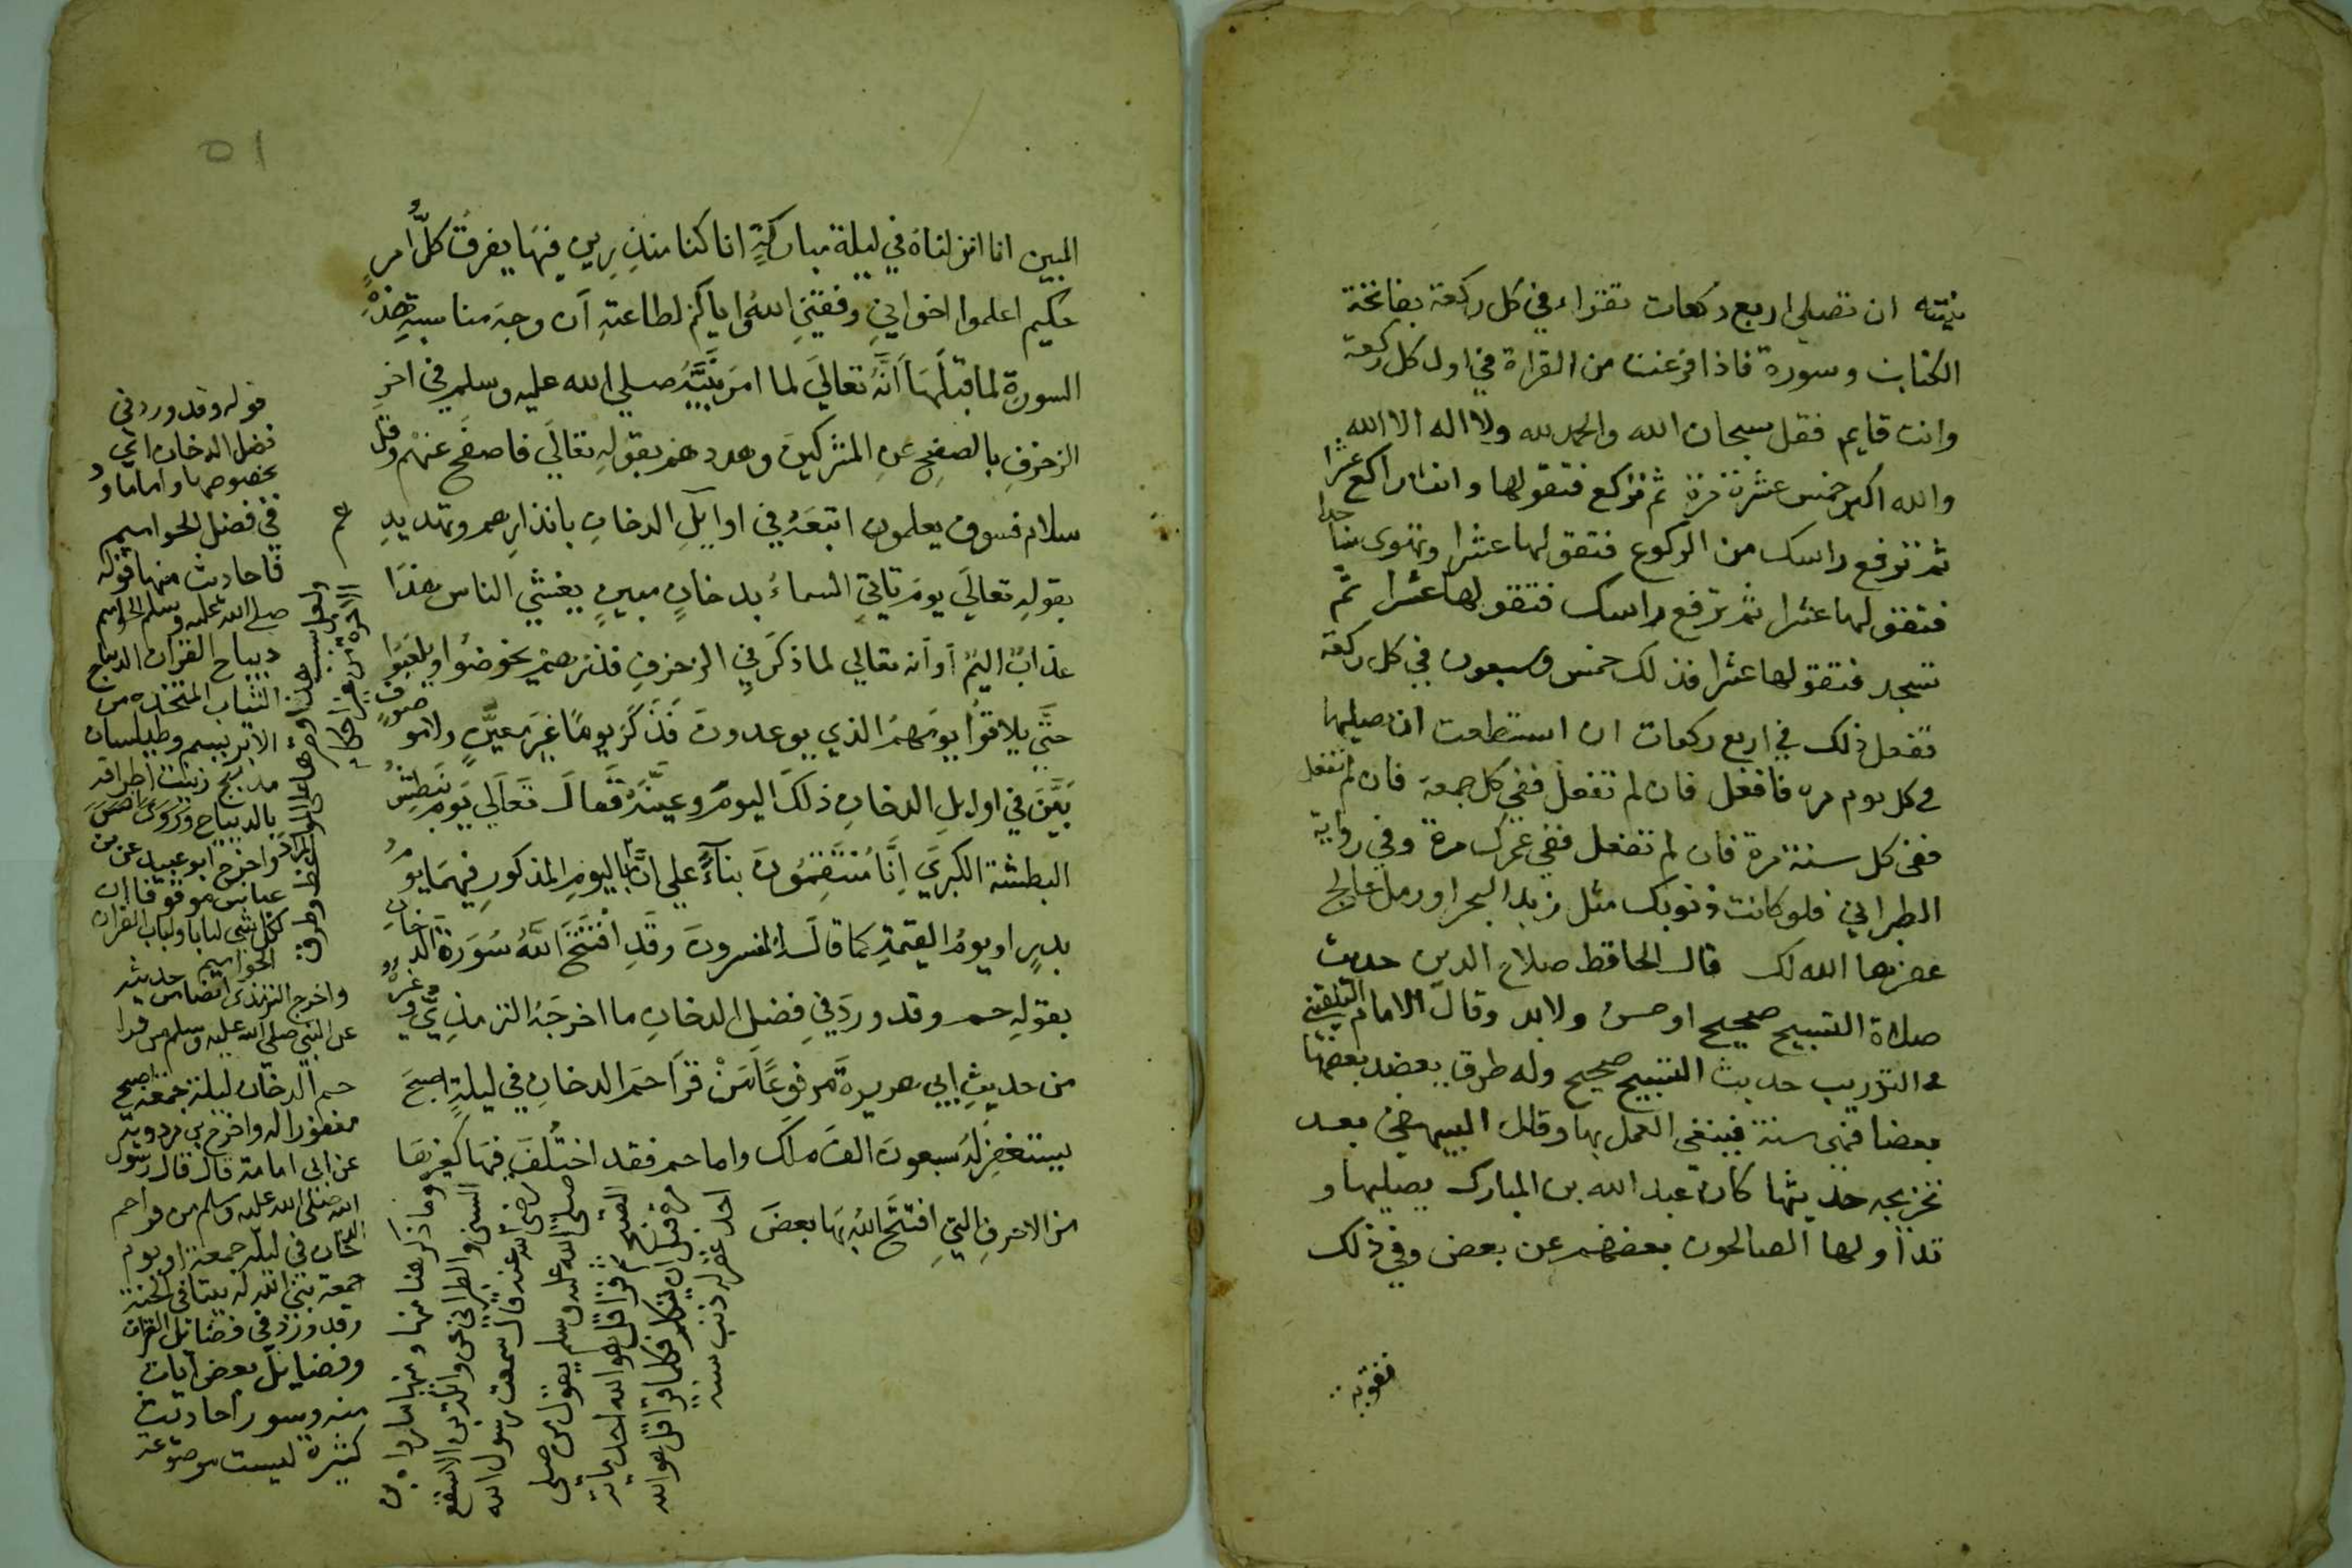 ان تصلي اربع ركعات تقراء في كل ركعة بفاتحة
الكتاب وسورة فاذا فرغت من القراة في اول كل ركعة
وانت قايم فقل سبحان الله والحمد لله ولا اله الا الله
والله اكبر خمس عشرة مرة ثم تركع فتقولها وانت راكع عشرا
ثم ترفع راسك من الركوع فتقولها عشرا وتهوى ساجدا
فتقولها عشرا ثم ترفع راسك فتقولها عشرا ثم
تسجد فتقولها عشرا فذلك خمس وسبعون في كل ركعة
تفعل ذلك في اربع ركعات ان استطعت ان تصليها
في كل يوم مرة فافعل فان لم تفعل ففي كل جمعة فان لم تفعل
ففي كل سنة مرة فان لم تفعل ففي عمرك مرة وفي رواية
الطبراني فلو كانت ذنوبك مثل زبد البحر او رمل عالج
غفرها الله لك قال الحافظ صلاح الدين حديث
صلاة التسبيح صحيح او حسن ولابد وقال الامام البلقيني
في التدريب حديث التسبيح صحيح وله طرق يعضد بعضها
بعضا فهي سنة فينبغي العمل بها وقال البيهقي بعد
تخريجه حديثها كان عبد الله بن المبارك يصليها و
تداولها الصالحون بعضهم عن بعض وفي ذلك
تقوية
٥١
المبين انا انزلناه في ليلة مباركةٍ انا كنا منذِرِين فيهَا يفرقُ كلُّ امرٍ
حكيم اعلموا اخواني وفقني اللهُ واياكم لطاعتهِ ان وجهَ مناسبةِ هذهِ
السورة لما قبلَهَا اَنَّهُ تعاليَ لما امرَ نبيَّهُ صلي الله عليه وسلم في اخرِ
الزخرفِ بالصفحِ عن المشركينَ وهددهم بقولهِ تعالَي فاصفَح عنهْم وقلْ
سلام فسوف يعلمون اتبعَهُ في اوايلِ الدخانِ بانذارِهم وتهديدِهم
بقولهِ تعاليَ يومَ تاتي السماءُ بدخانٍ مبينٍ يغشي الناس هذَا
عذابٌ اليمٌ أو أنه تعالي لما ذكرَ في الزخرفِ فذرهمْ يخوضُوا ويلعبُوا
حتَّي يلاقوُا يومَهمُ الذي يوعدونَ فَذَكَرَ يومًا غيرَ معيَّنٍ ولا موصوفٍ
بَيَّنَ في اوايلِ الدخانِ ذلكَ اليومَ وعيَّنَهُ فَقَالَ تَعَالَي يَومَ نَبطِشُ
البطشة الكبريَ اِنَّا مُنْتَقِمُونَ بناءً علي انَّ باليومِ المذكورِ فيهمَا يومُ
بدرٍ او يومُ القيمةِ كما قالَهُ المفسرونَ وقَدِ افْتَتَحَ اللَّهُ سُوَرةَ الدخانِ
بقولهِ حم وقد وردَ في فضلِ الدخانِ ما اخرجَهُ الترمذِيُّ وغيرُهُ
من حديثِ ابي هريرةَ مرفوعًا مَنْ قرَا حمَ الدخانِ في ليلةٍ اصبحَ
يستغفِرُ لهُ سَبعونَ الفَ ملَك واما حم فقد اختُلفَ فيهَا كغيرِهَا
من الاحرفِ التيِ افتتَحَ اللهُ بهَا بعضَ
قوله وقد ورد في
فضل الدخان اي
بخصوصها واما ما ورد
في فضل الحواميم
فاحاديث منها قوله
صلي الله عليه وسلم الحواميم
ديباج القران الديباج
الثياب المتخذة من
الابريسم وطيلسان
مدبج زينت اطرافه
بالديباج
واخرج ابو عبيد عن بن
عباس موقوفا ان
لكل شي لبابا ولباب القران
الحواميم
واخرج الترمذي ايضا من حديثه
عن النبي صلي الله عليه وسلم من قرا
حم الدخان ليلة جمعة اصبح
مغفورا له واخرج بن مردويه
عن ابي امامة قال قال رسول
الله صلي الله عليه وسلم من قرا حم
الدخان في ليلة جمعة او يوم
جمعة بني الله له بيتا في الجنة
وقد ورد في فضائل القران
وفضايل بعض ايات
منه وسور احاديث
كثيرة ليست موضوعة
وما ذكر هنا منها ومنها ما رواه بن
السني والطبراني عن واثلة بن الاسقع
رضي الله عنه قال سمعت رسول الله
صلي الله عليه وسلم يقول من صلي
الصبح ثم قرا قل هو الله احد ماية
مرة قبل ان يتكلم فكلما قرا قل هو الله
احد غفر له ذنب سنة